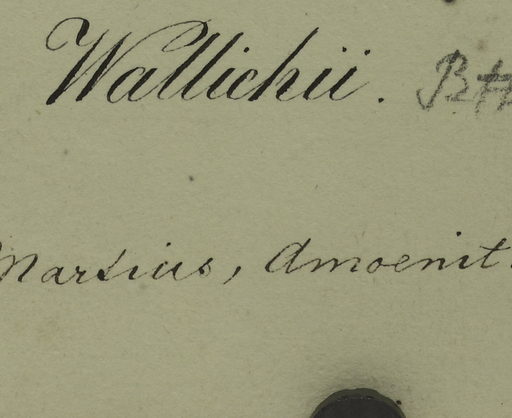 Wallichii.
Martius, Amoenit.